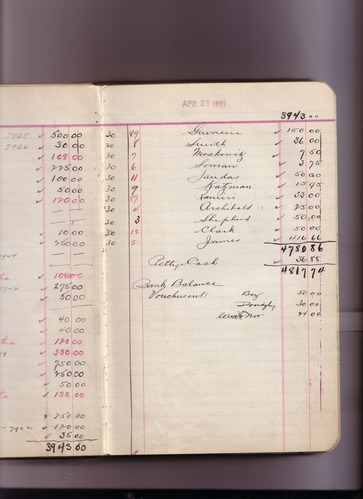 APR 25 1941
3943 00
500 00 30 29 Guerrin 150 00
30 00 30 8 Smith 36 00
108 00 30 7 Moskowitz 7 50
225 00 30 6 Soman 3 75
100 00 30 11 Jundas 50 00
50 00 30 9 Katzman 15 95
120 00 30 17 Ranieri 33 00
30 2 Archibald 25 00
30 3 Shepherd 50 00
10 00 30 12 Clark 50 00
250 00 30 2 James 416 66
4780 86
Petty Cash 36 88
108 00 4817 74
275 00 Bank Balance
50 00 Vouchers out: Boy 50 00
30 00
40 00 24 00
40 00
120 00
330 00
750 00
250 00
50 00
132 00
250 00
7922 120 00
35 00
3943 00